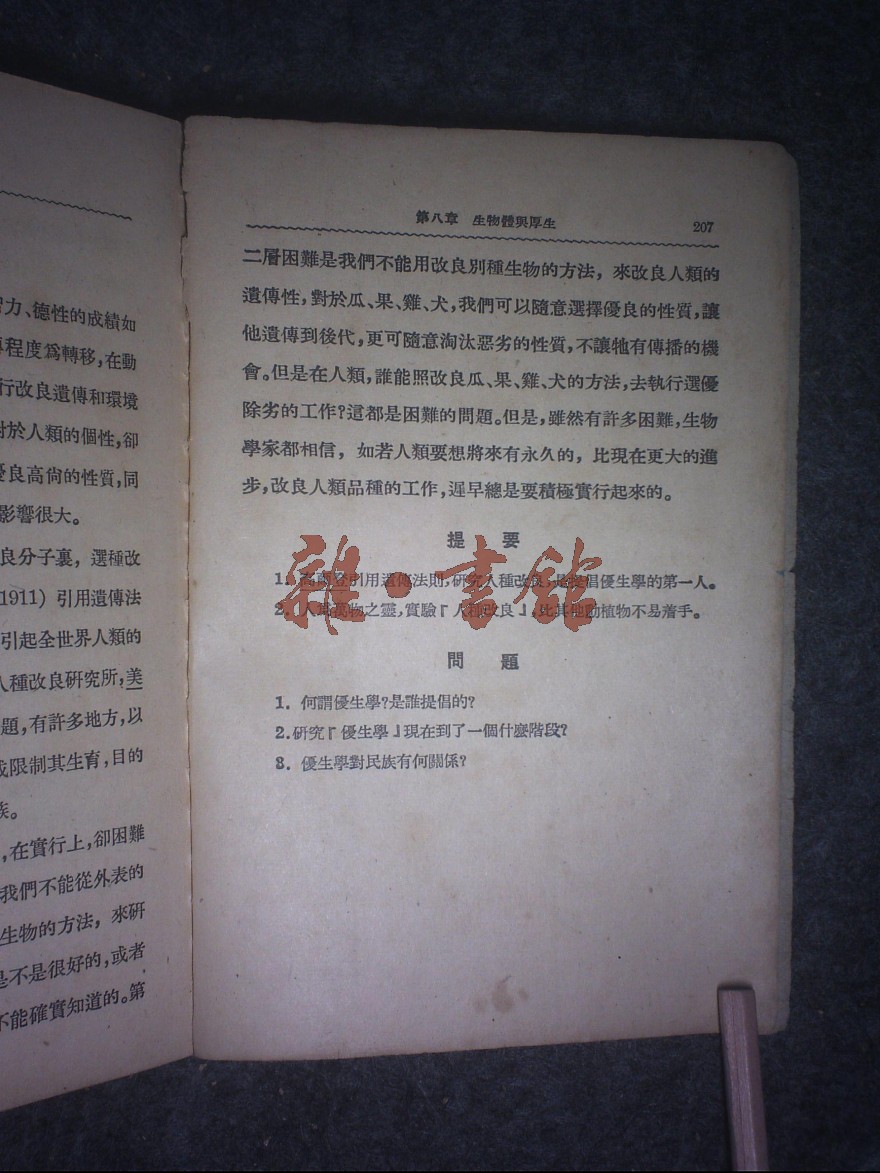 智力、德性的成績如
程度爲轉移，在動
行改良遺傳和環境
對於人類的個性，卻
優良高尙的性質，同
影響很大。
良分子裏，選種改
1911) 引用遺傳法
引起全世界人類的
人種改良硏究所，美
題，有許多地方，以
或限制其生育，目的
族。
，在實行上，卻困難
我們不能從外表的
生物的方法，來硏
是不是很好的，或者
不能確實知道的。第
第八章 生物體與厚生 207
二層困難是我們不能用改良別種生物的方法，來改良人類的
遺傳性，對於瓜、果、雞、犬，我們可以隨意選擇優良的性質，讓
他遺傳到後代，更可隨意淘汰惡劣的性質，不讓牠有傳播的機
會。但是在人類，誰能照改良瓜、果、雞、犬的方法，去執行選優
除劣的工作？這都是困難的問題。但是，雖然有許多困難，生物
學家都相信，如若人類要想將來有永久的，比現在更大的進
步，改良人類品種的工作，遲早總是要積極實行起來的。
提 要
1. 高爾登引用遺傳法則，硏究人種改良，是提倡優生學的第一人。
2. 人爲萬物之靈，實驗『人種改良』，比其他動植物不易着手。
雜·書館
問 題
1. 何謂優生學？是誰提倡的？
2.硏究『優生學』現在到了一個什麼階段？
3. 優生學對民族有何關係？